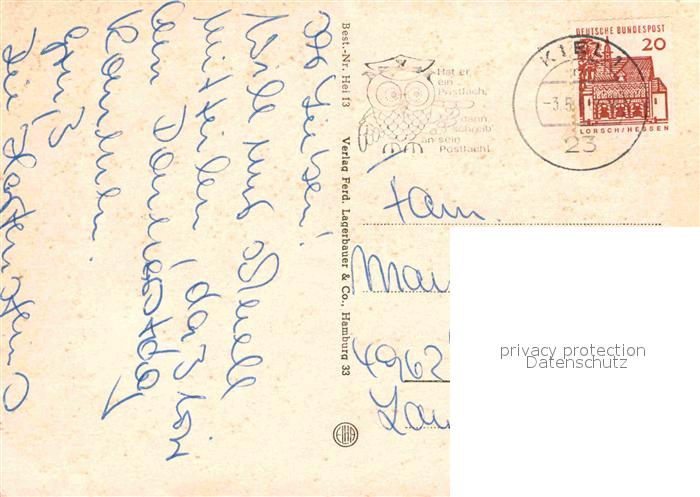 Ihr Lieben!
Will nur schnell
mitteilen, daß wir
am Donnerstag
kommen.
Gruß
Best.-Nr. Hei 13 Verlag Ferd. Lagerbauer & Co., Hamburg 33
Hat er
ein
Postfach,
dann
schreib'
an sein
Postfach!
KIEL 1
-3.5.
23
DEUTSCHE BUNDESPOST
20
LORSCH/HESSEN
Fam.
4962
privacy protection
Datenschutz